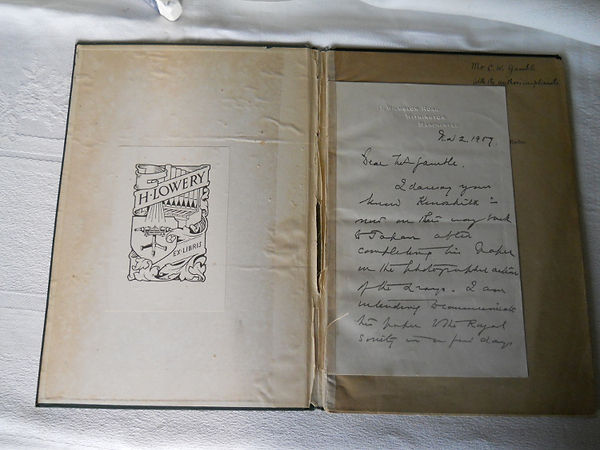 H. LOWERY
EX LIBRIS
Mr. C. W. Gamble
with the author's compliments
17 Wilmslow Road,
Withington,
Manchester.
Nov 2. 1909.
Dear Mr Gamble.
I daresay you
know Kinoshita is
now on his way back
to Japan after
completing his paper
on the photographic action
of the α rays. I am
intending to communicate
his paper to the Royal
Society in a few days